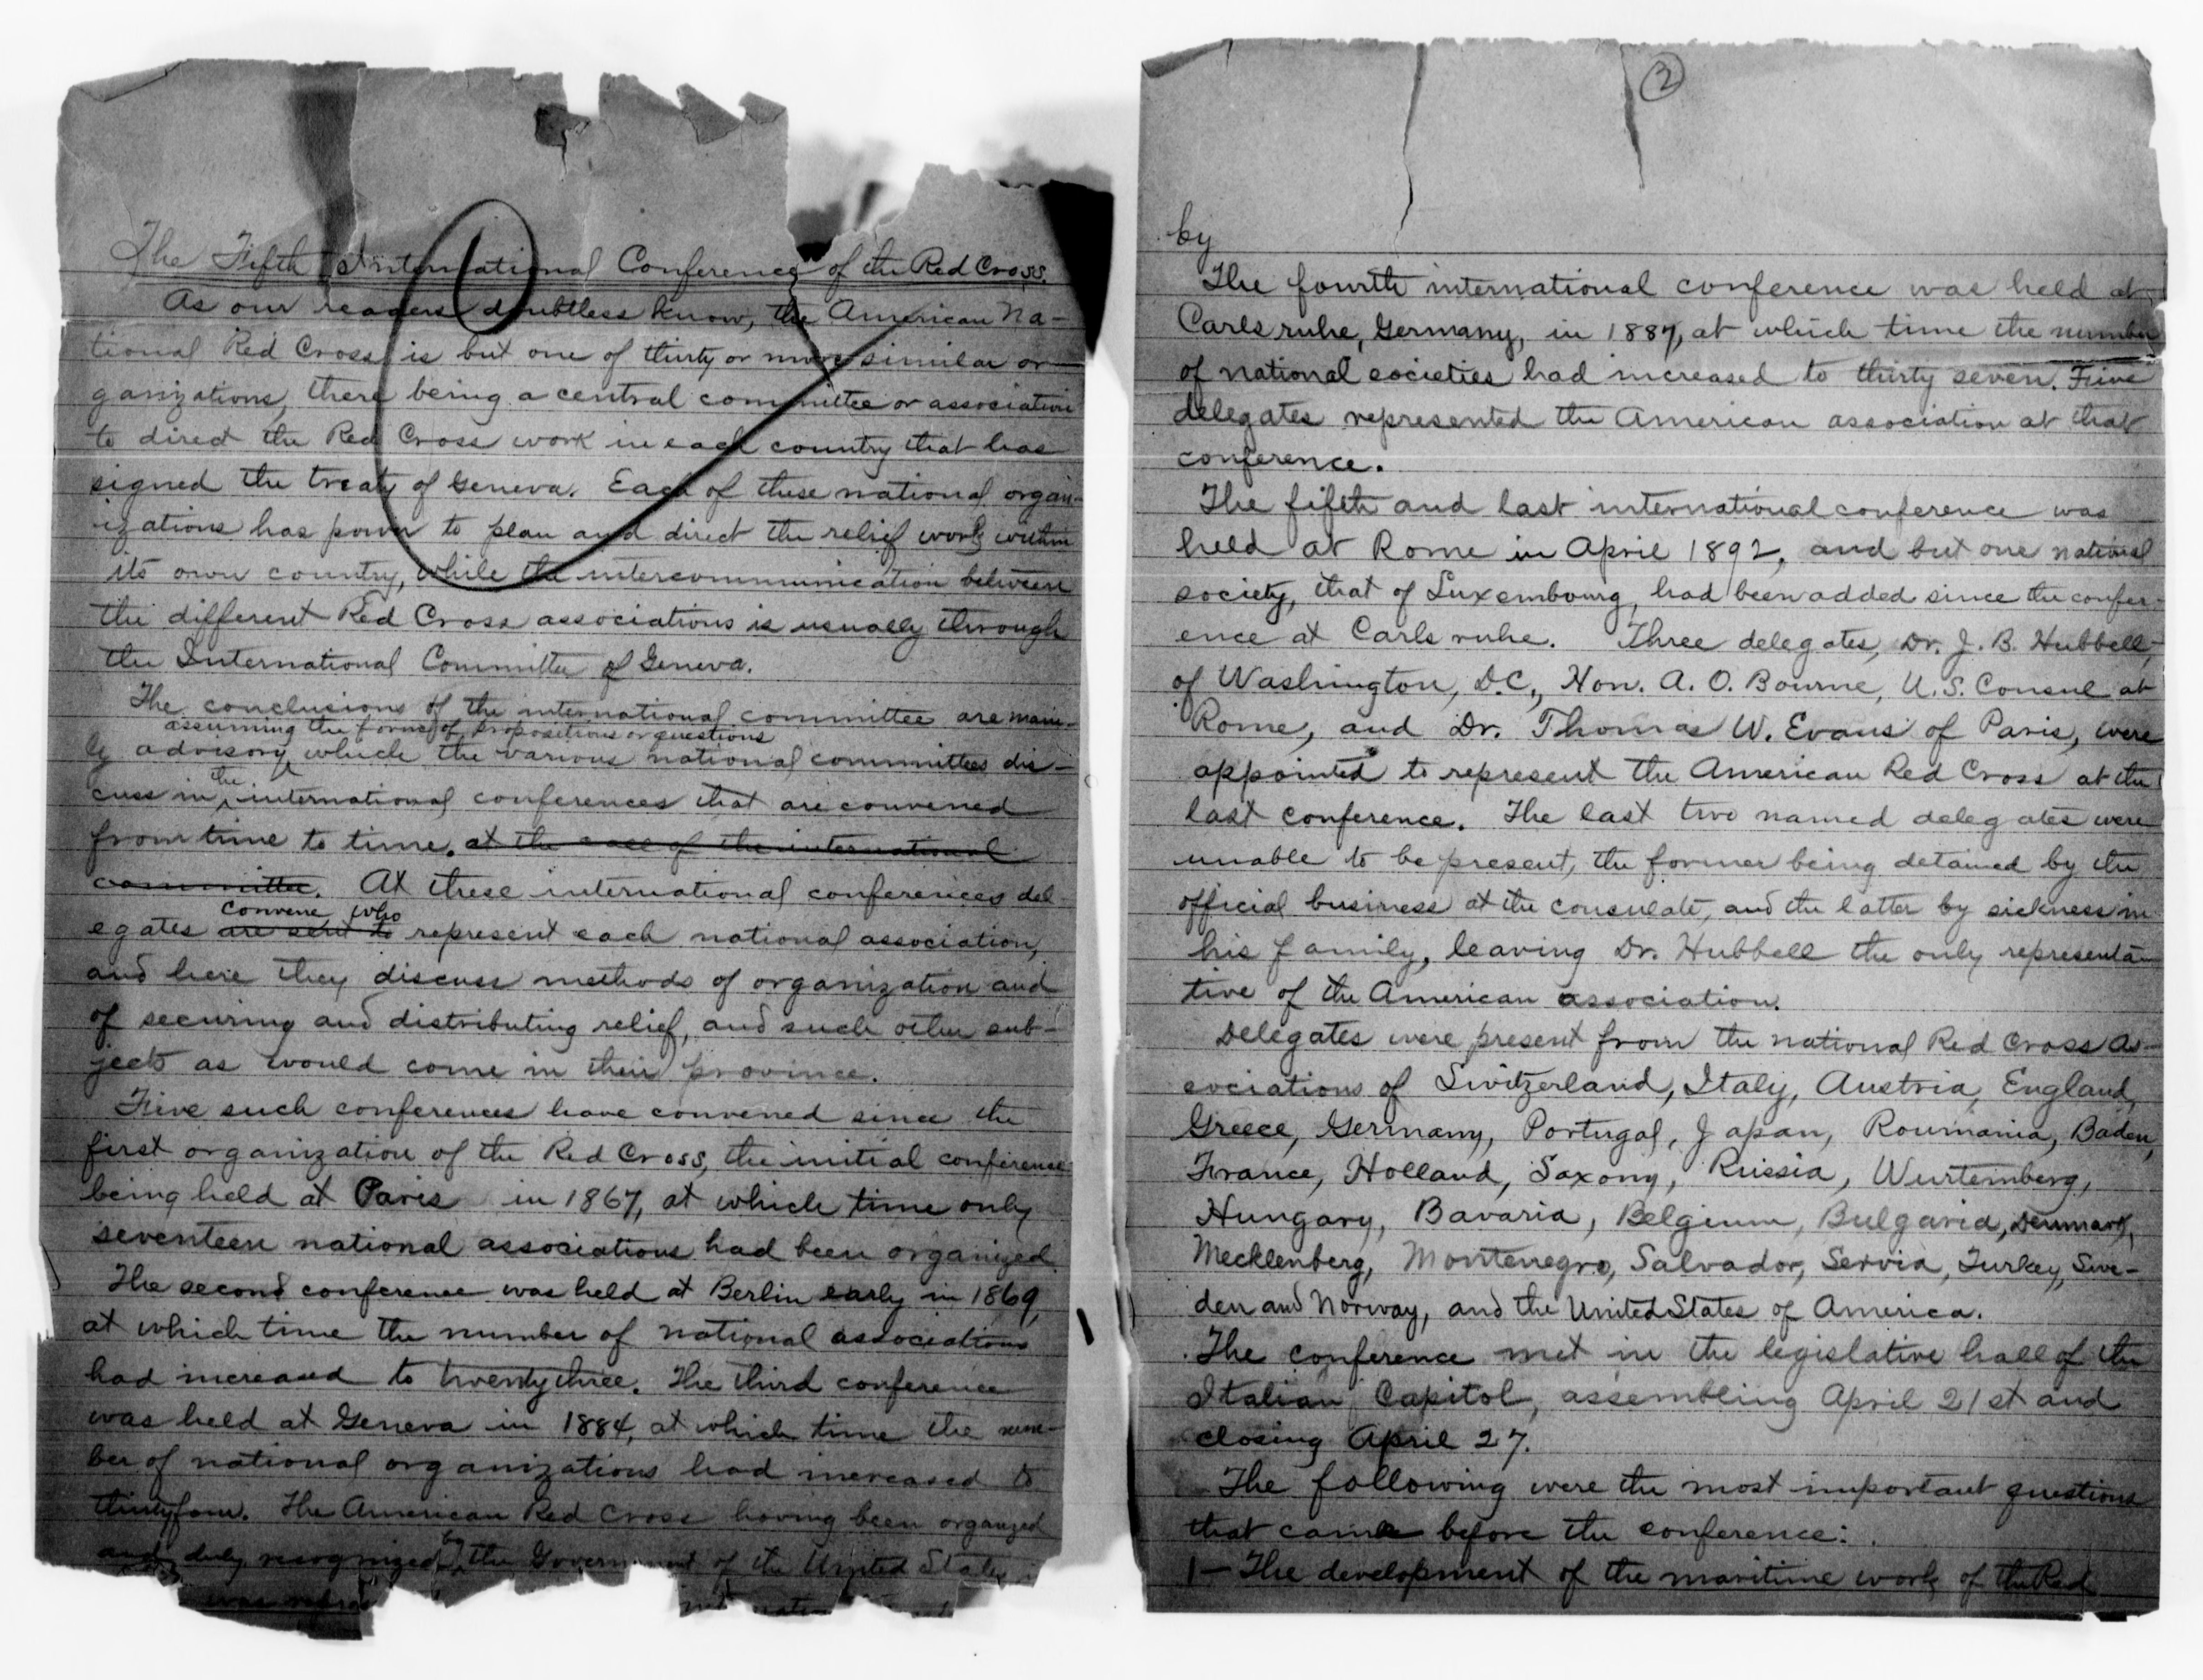 1
The Fifth International Conference of the Red Cross.
As our readers doubtless know, the American Na-
tional Red Cross is but one of thirty or more similar or-
ganizations, there being a central committee or association
to direct the Red Cross work in each country that has
signed the treaty of Geneva. Each of these national organ-
izations has power to plan and direct the relief work within
its own country, while the intercommunication between
the different Red Cross associations is usually through
the International Committee of Geneva.
The conclusions of the international committee are main-
assuming the forms of propositions or questions
ly advisory which the various national committees dis-
the
cuss in international conferences that are convened
from time to time. at the call of the international
committee. At these international conferences del-
convene who
egates are sent to represent each national association,
and here they discuss methods of organization and
of securing and distributing relief, and such other sub-
jects as would come in their province.
Five such conferences have convened since the
first organization of the Red Cross, the initial conference
being held at Paris in 1867, at which time only
seventeen national associations had been organized
The second conference was held at Berlin early in 1869,
at which time the number of national associations
had increased to twenty three. The third conference
was held at Geneva in 1884, at which time the num-
ber of national organizations had increased to
thirty four. The American Red Cross having been organized
by
and duly recognized the Government of the United States
was
2
by
The fourth international conference was held at
Carlsruhe, Germany, in 1887, at which time the number
of national societies had increased to thirty seven. Five
delegates represented the American association at that
conference.
The fifth and last international conference was
held at Rome in April 1892, and but one national
society, that of Luxembourg, had been added since the confer-
ence at Carlsruhe. Three delegates, Dr. J. B. Hubbell,
of Washington, D.C., Hon. A. O. Bourne, U.S. Consul at
Rome, and Dr. Thomas W. Evans of Paris, were
appointed to represent the American Red Cross at the
last conference. The last two named delegates were
unable to be present, the former being detained by the
official business at the consulate, and the latter by sickness in
his family, leaving Dr. Hubbell the only representa-
tive of the American association.
Delegates were present from the national Red Cross As-
sociations of Switzerland, Italy, Austria, England,
Greece, Germany, Portugal, Japan, Roumania, Baden,
France, Holland, Saxony, Russia, Wurtemberg,
Hungary, Bavaria, Belgium, Bulgaria, Denmark,
Mecklenberg, Montenegro, Salvador, Servia, Turkey, Swe-
den and Norway, and the United States of America.
The conference met in the legislative hall of the
Italian Capitol, assembling April 21st and
closing April 27.
The following were the most important questions
that came before the conference:
1 — The development of the maritime work of the Red